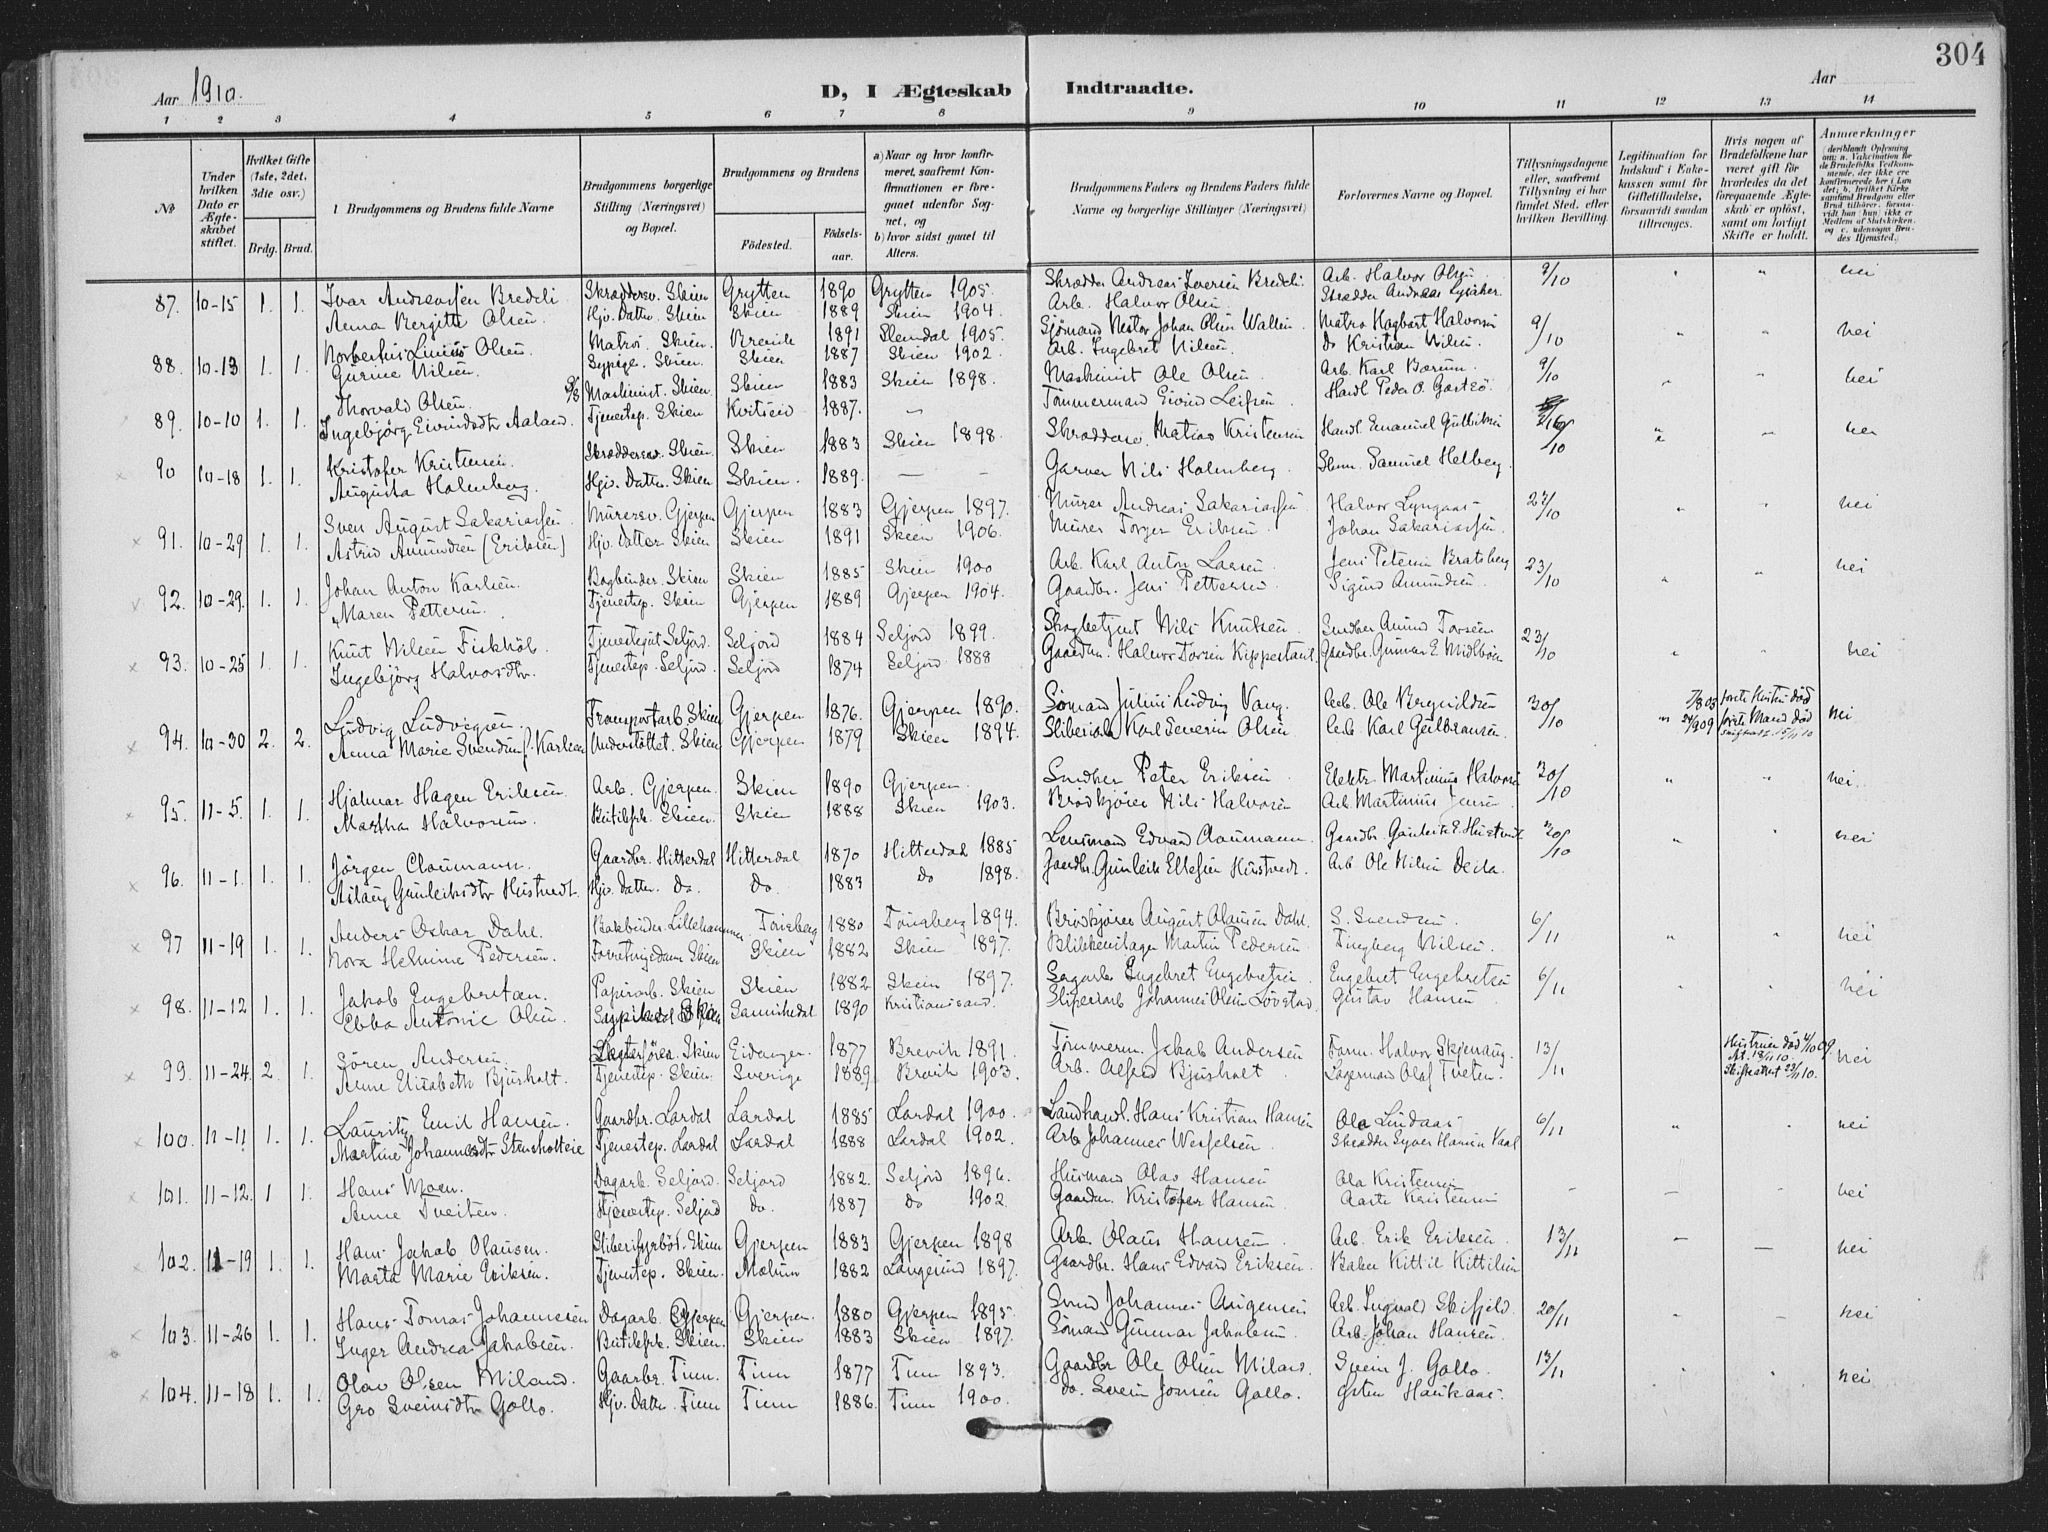 304
Aar 1910.
D, I Ægteskab Indtraadte.
Aar
1 2 3 4 5 6 7 8 9 10 11 12 13 14
№
Under hvilken Dato er Ægteskabet stiftet.
Hvilket Gifte (1ste, 2det, 3die osv.)
Brdg. Brud.
Brudgommens og Brudens fulde Navne
Brudgommens borgerlige Stilling (Næringsvei) og Bopæl.
Brudgommens og Brudens
Fødested. Fødselsaar.
a) Naar og hvor konfirmeret, saafremt Konfirmationen er foregaaet udenfor Sognet, og
b) hvor sidst gaaet til Alters.
Brudgommens Faders og Brudens Faders fulde Navne og borgerlige Stillinger (Næringsvei)
Forlovernes Navne og Bopæl.
Tillysningsdagene eller, saafremt Tillysning ei har fundet Sted, efter hvilken Bevilling.
Legitimation for Indskud i Enkekassen samt for Giftetilladelse, forsaavidt saadan tiltrænges.
Hvis nogen af Brudefolkene har været gift før hvorledes da det foregaaende Ægteskab er opløst, samt om lovligt Skifte er holdt.
Anmærkninger
87. 10-15 1. 1. Ivar Andreassen Bredeli Skræddersv. Skien Grytten 1890 Grytten 1905. Skrædder Andreas Iversen Bredeli Arb. Halvor Olsen 9/10 " " nei
Anna Bergitte Olsen. Hjv. Datter Skien Skien 1889 Skien 1904. Arb. Halvor Olsen. Skrædder Andreas Lysaker.
88. 10-13 1. 1. Norbertus Linius Olsen. Matros. Skien. Brevik 1891 Slemdal 1905. Sjömand Nestor Johan Olsen Wallin. Matros Hagbart Halvorsen 9/10 " " nei
Gurine Nilsen. Sypige. Skien. Skien 1887 Skien 1902. Arb. Ingebret Nilsen. do Kristian Nilsen.
89. 10-10 1. 1. Thorvald Olsen. Maskinist. Skien. Skien 1883 Skien 1898. Maskinist Ole Olsen. Arb. Karl Bærum. 9/10 " " nei
Ingebjörg Eivindsdtr Aaland. Tjenestep. Skien Kvitseid 1887. " Tömmermand Eivind Leifsen. Handl Peder O.
90 10-18 1. 1. Kristofer Kristensen. Skræddersv. Skien. Skien 1883 Skien 1898. Skræddersv. Matias Kristensen Handl. Emanuel Gulliksen " " nei
Augusta Holmberg. Hjv. Datter. Skien Skien. 1889. — — Garver Nils Holmberg. Samuel Helberg.
91. 10-29 1. 1. Sven August Sakariassen. Murersv. Gjerpen Gjerpen 1883 Gjerpen 1897. Murer Andreas Sakariassen Halvor Lyngaas 23/10 " " nei
Astrid Amundsen (Eriksen) Hjv. Datter Skien Skien 1891 Skien 1906. Murer Torger Eriksen Johan Sakariassen.
92. 10-29. 1. 1. Johan Anton Karlsen. Bogbinder. Skien Skien 1885 Skien 1900 Arb. Karl Anton Larsen Jens Petersen Bratsberg 23/10 " " nei
Maren Pettersen. Tjenestep. Skien Gjerpen 1889 Gjerpen 1904. Gaardbr. Jens Pettersen Sigurd Amundsen.
93. 10-25 1. 1. Knut Nilsen Fiskhöl. Tjenestegut Seljord. Seljord 1884 Seljord 1899. Nils Knutsen Smdber Amund Torsen 23/10 " " nei
Ingebjörg Halvorsdtr. Tjenestep. Seljord. Seljord 1874 Seljord 1888 Gaardm. Halvor Torsen Gaardbr. Gunnar E. Midlböen
94. 10-30 2. 2. Ludvig Ludvigsen. Transportarb. Skien Gjerpen 1876. Gjerpen 1890. Sömand Julius Ludvig Vang. Arb. Ole Bergvildsen 30/10 7/8 03 forste Hustru död nei
Anna Marie Svendsen f. Karlsen Understöttet. Skien Gjerpen 1879 Skien 1894. Sliberiarb Karl Severin Olsen Arb Karl Gulbransen. 24/9 09 forste Mand död
skifteatt. 15/11 10
95. 11-5. 1. 1. Hjalmar Hagen Eriksen. Arb. Gjerpen. Skien 1890 Gjerpen. Smdber Peter Eriksen Elektr. Martinius Halvorsen 30/10 " " nei.
Martha Halvorsen. Butikfrk. Skien. Skien 1888 Skien 1903. Brödkjörer Nils Halvorsen Arb. Martinius Jensen.
96. 11-1. 1. 1. Jörgen Cloumann. Gaardbr. Hitterdal Hitterdal 1870 Hitterdal 1885 Lensmand Edvard Cloumann. Gaardbr. Gunleik E. Hustvedt 30/10 " " nei
Aslaug Gunleiksdtr Hustvedt. Hjv. Datter. do. do. 1883 do 1898. Jordbr. Gunleik Ellefsen Hustvedt. Arb Ole Nilsen
97 11-19 1. 1. Anders Oskar Dahl. Bokbinder. Lillehammer Tönsberg 1880 Tönsberg 1894. Brödkjörer August Olausen Dahl. S. Svendsen. 6/11 " " nei
Nora Helmine Pedersen. Forretningsdame Skien Skien 1882 Skien 1897. Blikkenslager Martin Pedersen Tingberg Nilsen.
98. 11-12 1. 1. Jakob Engebretsen. Papirarb. Skien Skien 1882 Skien 1897. Sagarb Engebret Engebretsen Engebret Engebretsen 6/11 " " nei
Ebba Antonie Olsen. Skien Sannikedal 1890 Kristianssand. Sliperiarb Johannes Olsen Lövstad Gustav Hansen
99. 11-24. 2. 1. Sören Andersen. Skien Eidanger. 1877 Brevik 1891. Tömmerm. Jakob Andersen Halvor Skjenaug. 13/11 Hustruen död 4/10 09. nei
Anne Elisabeth Bjusholt. Tjenestep. Skien. Sverige 1889 Brevik 1903. Arb. Alfred Bjusholt Lagermand Olaf Tveten. At. 18/11 10.
Skifteattest 23/11 10.
100. 11-11 1. 1. Lauritz Emil Hansen. Gaardbr. Lardal Lardal 1885 Lardal 1900. Landhandl. Hans Kristian Hansen Ole Lindaas 6/11 " " nei
Martine Johannesdtr Stensholteie Tjenestep. Lardal Lardal 1888 Lardal 1902. Arb Johannes Wesselsen Skrædder Syver Hansen
101. 11-12. 1 1. Hans Moen. Dagarb. Seljord. Seljord 1882. Seljord 1896. Husmand Olav Hansen Ola Kristensen — — nei
Anne Tveiten. Tjenestep. Seljord do. 1887 do 1902 Gaardm. Kristofer Hansen. Aarte Kristensen
102. 11-19 1. 1. Hans Jakob Olausen. Sliberifyrböt. Skien Gjerpen 1883 Gjerpen 1898 Arb Olaus Hansen Arb. Erik Eriksen. 13/11 — — nei
Marta Marie Eriksen. Tjenestep. Skien. Molum 1882 Langesund 1897. Gaardbr. Hans Edvard Eriksen. Baker Kittil Kittilsen
103. 11-26 1. 1. Hans Tomas Johannesen Dagarb. Gjerpen Gjerpen. 1880 Gjerpen 1895 Smed Johannes Arb. Ingvald Skifjeld. 20/11 " " nei
Inger Andrea Jakobsen. Butikfrk. Skien. Skien 1883 Skien 1897. Sömand Gunnar Jakobsen. Arb. Johan Hansen.
104. 11-18 1. 1. Olav Olsen Miland. Gaardbr. Tinn. Tinn 1877 Tinn 1893. Gaardbr Ole Olsen Miland. Svein J. Gollo. 13/11 " " nei
Gro Sveinsdtr Gollo. Hjv. Datter. Tinn Tinn 1886. Tinn 1900. do. Svein Jonsen Gollo. Østen Haukaas.